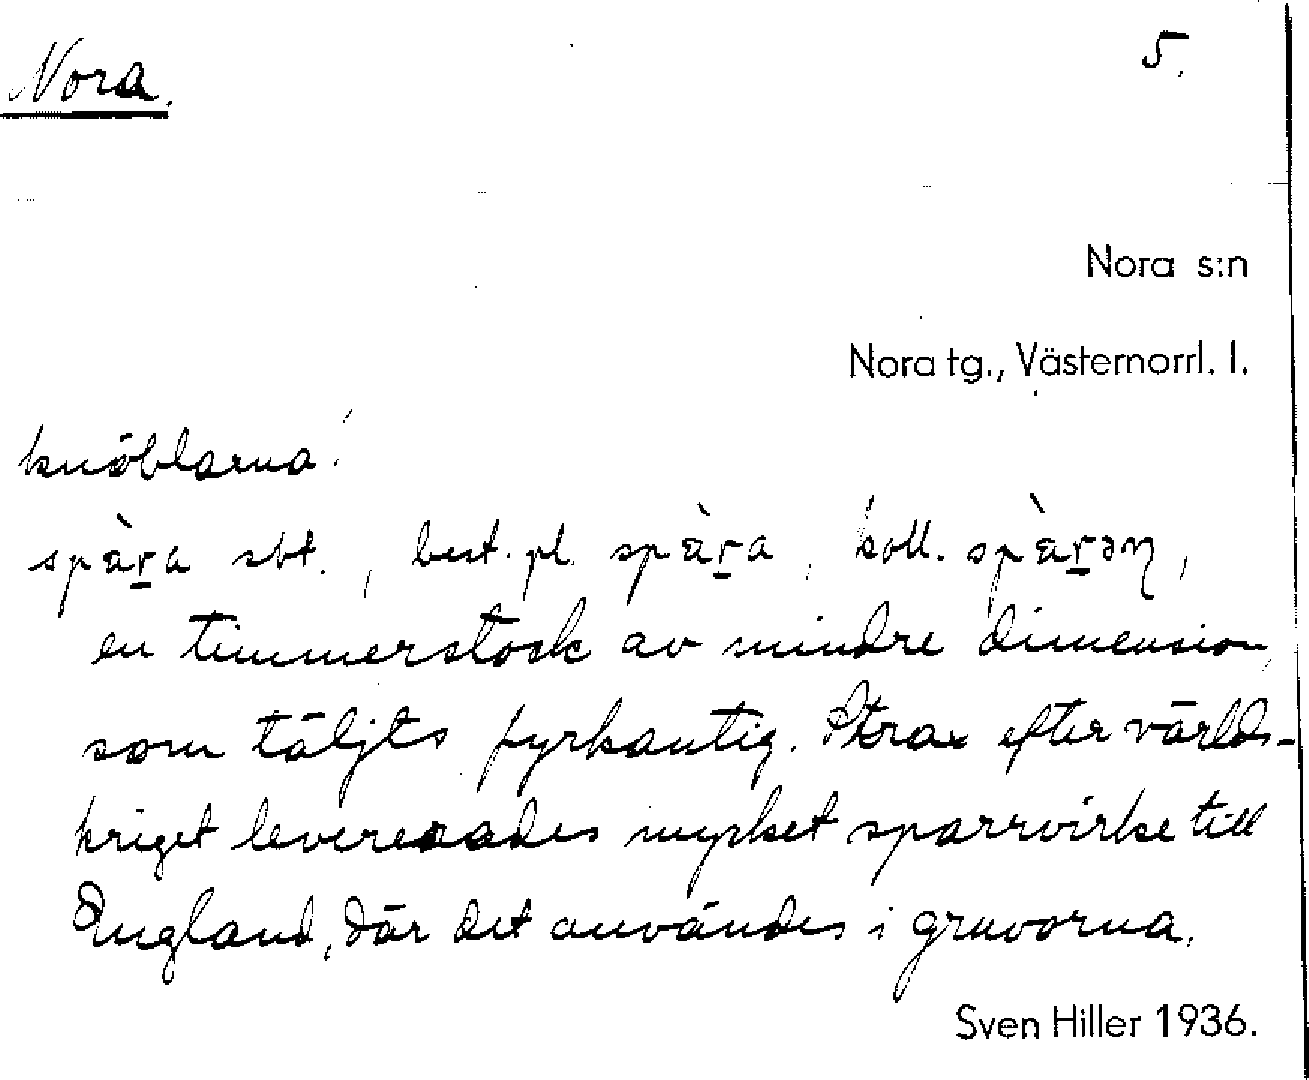 Nora.
5.
Nora s:n
Nora tg., Västernorrl. l.
knöblarna!
spàr̲a sbt., best. pl. spàr̲a, koll. spàr̲ən,
en timmerstock av mindre dimension,
som täljts fyrkantig. Strax efter världs-
kriget levererades mycket sparrvirke till
England, där det användes i gruvorna.
Sven Hiller 1936.